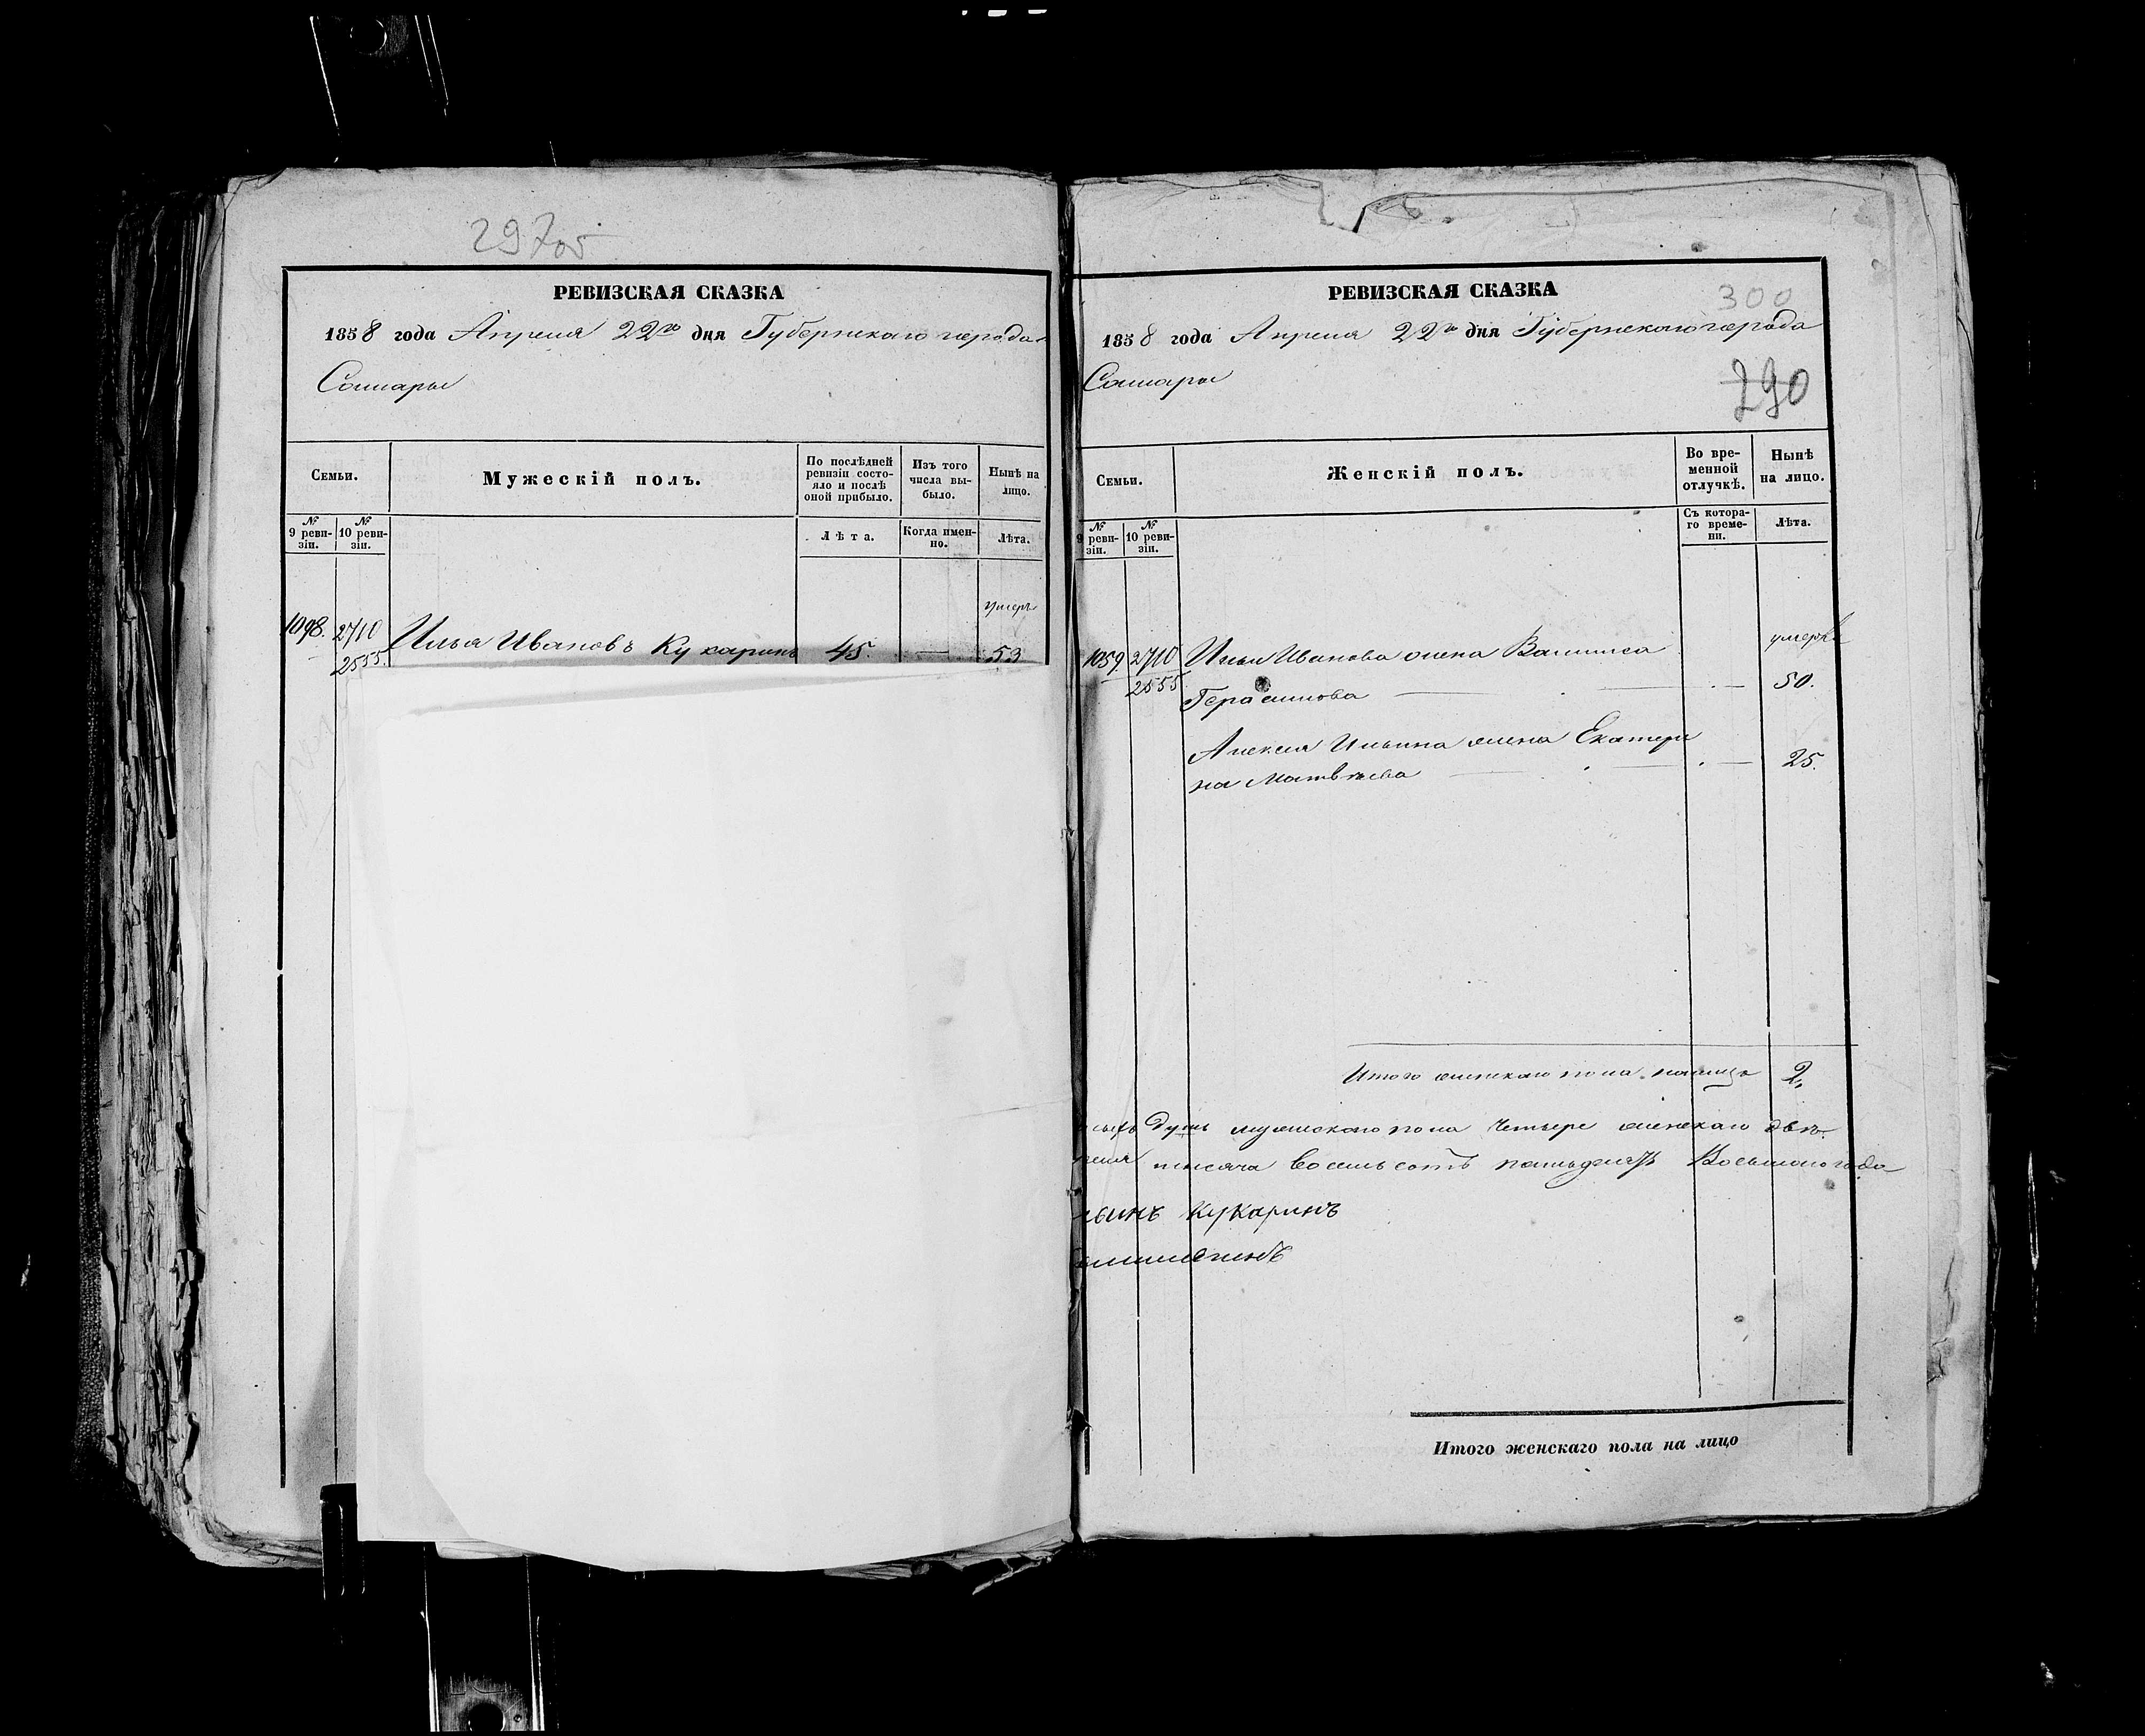 297об
РЕВИЗСКАЯ СКАЗКА
1858 года Апреля 22го дня Губернскаго города
Самары
Семьи.
Мужескій полъ.
По послѣдней ревизіи состояло и послѣ оной прибыло.
Изъ того числа выбыло.
Нынѣ на лицо.
№ 9 ревизіи.
№ 10 ревизіи.
Лѣта.
Когда именно.
Лѣта.
умеръ
1098. 2710 Илья Ивановъ Кукаринъ 45. — 53
2555.
РЕВИЗСКАЯ СКАЗКА
300
1858 года Апреля 22го дня Губернскаго города
Самары
290
Семьи.
Женскій полъ.
Во временной отлучкѣ.
Нынѣ на лицо.
№ 9 ревизіи.
№ 10 ревизіи.
Съ котораго времени.
Лѣта.
1059 2710 Ильи Иванова жена Васлиса
2555 Герасимова — 50.
Алексея Ильина жена Екатери
на Матвѣева — 25.
Итого женскаго пола налицо 2,
душъ мужескаго пола четыре женскаго двѣ
тысяча восемьсотъ пятьдесятъ Восьмаго года
Кукаринъ
Итого женскаго пола на лицо